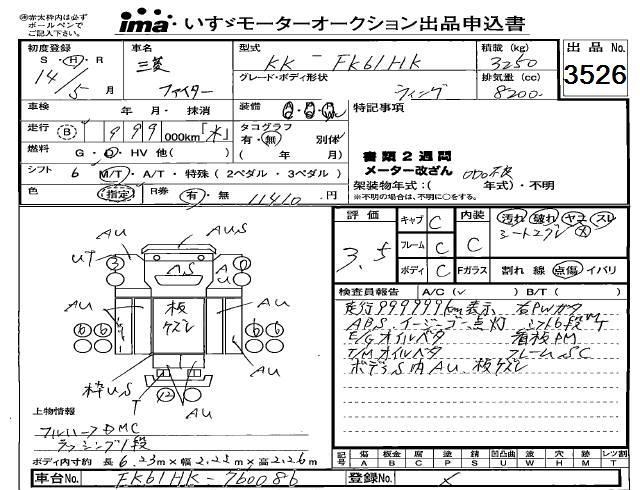 赤太枠内は必ず
ボールペンで
ご記入下さい。
ima いすゞモーターオークション出品申込書
初度登録
S・H・R
14/5月
車名
三菱
ファイター
型式
KK-FK61HK
グレード・ボディ形状
ウィング
積載(kg)
3250
排気量(cc)
8200
出品No.
3526
車検 年・月・抹消
装備
特記事項
走行 B 999 000km「水」
タコグラフ 有・無 別体
燃料 G・D・HV 他( )
( 年 月)
書類2週間
メーター改ざん
シフト 6 M/T・A/T・特殊(2ペダル・3ペダル)
架装物年式:( 年式)・不明
※不明の場合は、不明に○をする。
色 指定 R券 有・無 11410円
評価
3.5
キャブ C
フレーム C
ボディ C
内装 C
汚れ 破れ ヤユ スレ
Fガラス 割れ 線 点傷 イバリ
検査員報告 A/C(✓ ) B/T( )
走行999999km表示 右PWガタ
ABS、イージーゴー点灯 シフト6段MT
E/Gオイルベタ 看板PM
T/Mオイルベタ フレームSC
ボデーS内AU、板ケズレ
AU
AUS
AU
UT
3
AS
0
U
AU
板
ケズレ
AU
6 6
6 6
枠US
T
AU
AU
上物情報
フルハーフDMC
ラッシング1段
ボディ内寸約 長6.23m×幅2.23m×高2.26m
記号
傷 A
板金 B
腐 C
塗 P
錆 S
凹凸曲 U
凹 W
穴 H
換 M
裂 T
車台No. FK61HK-760086
登録No. ×